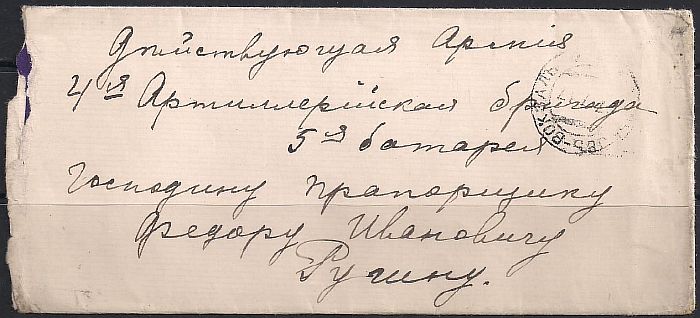 Дѣйствующая Армія
4ая Артиллерійская бригада
5ая батарея
Господину прапорщику
Федору Ивановичу